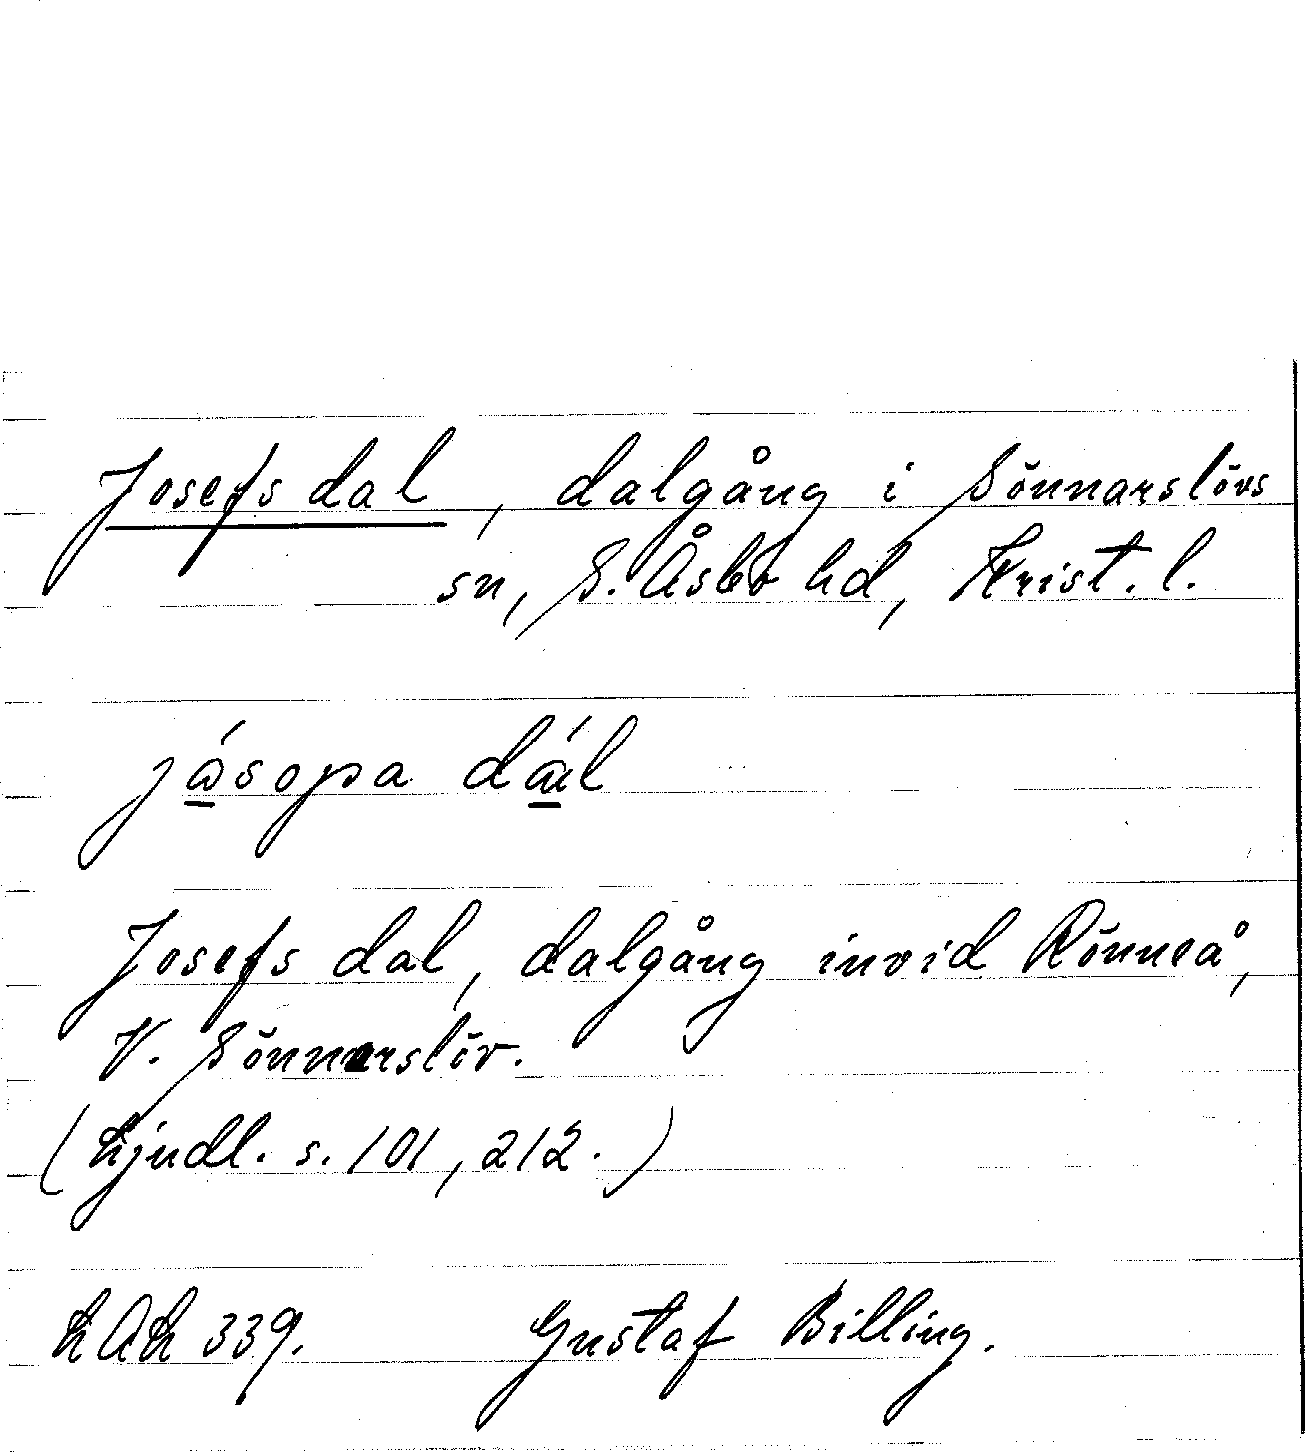 Josefs dal, dalgång i Sönnarslövs
sn, S. Åsbo hd, Krist. l.
jåsopa dál
Josefs dal, dalgång invid Rönneå,
V. Sönnarslöv.
(Ljudl. s. 101, 212.)
LAL 339. Gustaf Billing.